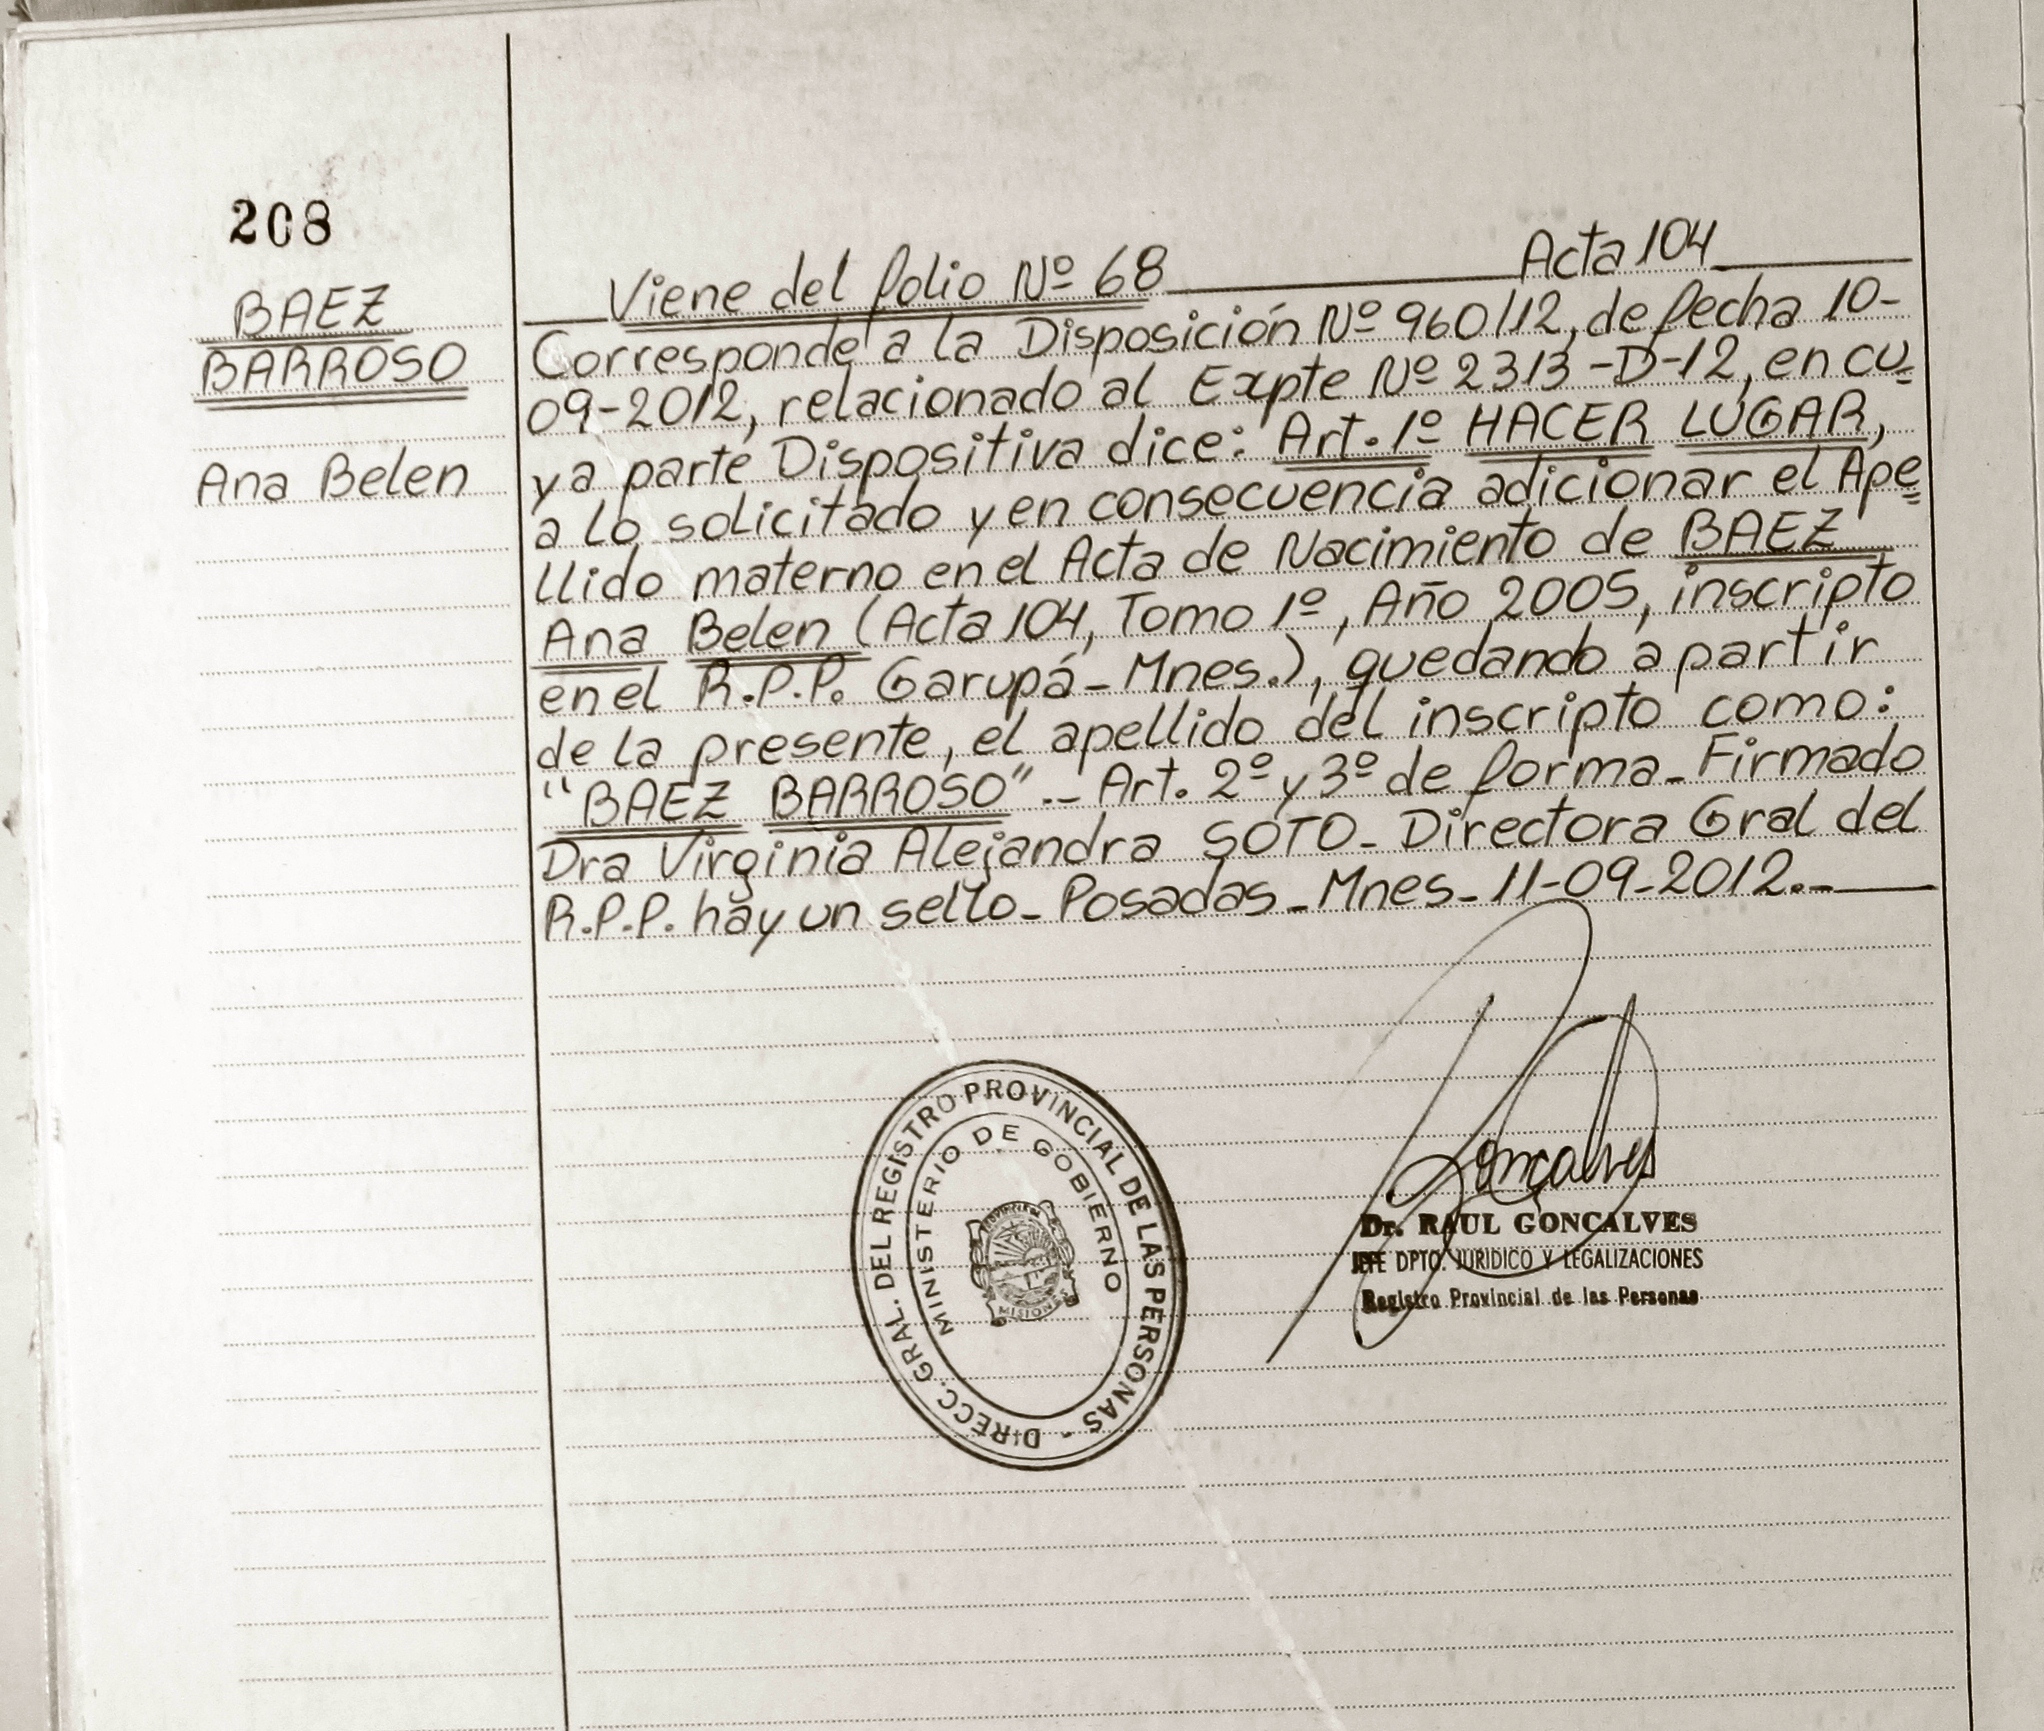 208
BAEZ
BARROSO
Ana Belen
Viene del folio Nº 68 Acta 104
Corresponde a la Disposición Nº 960/12, de fecha 10-
09-2012, relacionado al Expte Nº 2313-D-12, en cu=
ya parte Dispositiva dice: Art. 1º HACER LUGAR,
a lo solicitado y en consecuencia adicionar el Ape=
llido materno en el Acta de Nacimiento de BAEZ
Ana Belen (Acta 104, Tomo 1º, Año 2005, inscripto
en el R.P.P. Garupá - Mnes.), quedando a partir
de la presente, el apellido del inscripto como:
"BAEZ BARROSO".- Art. 2º y 3º de forma - Firmado
Dra Virginia Alejandra SOTO - Directora Gral del
R.P.P. hay un sello - Posadas - Mnes - 11-09-2012.-
DIRECC. GRAL. DEL REGISTRO PROVINCIAL DE LAS PERSONAS -
MINISTERIO DE GOBIERNO
PROVINCIA DE
MISIONES
Gonçalves
Dr. RAUL GONCALVES
JEFE DPTO. JURIDICO Y LEGALIZACIONES
Registro Provincial de las Personas